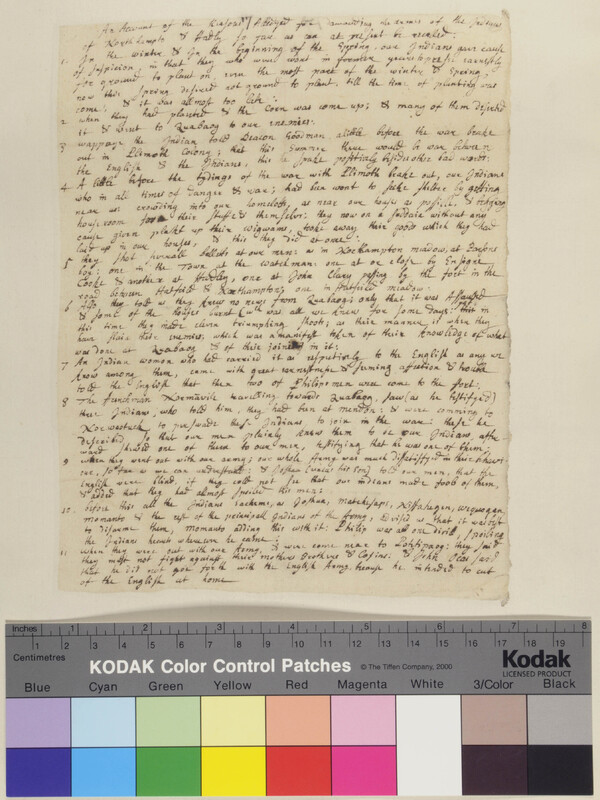 An Account of the Reasons Alledged for demanding the armes of the Indians
of Northampton & Hadly so far as can at present be recoled:
1. In the winter & in the beginning of the Spring, our Indians gave cause
of suspicion, in that they who were wont in former yeares to presse earnestly
for ground to plant on, even the most part of the winter & Spring,
now this Spring desired not ground to plant, till the time of planting was
come: & it was allmost too late:
2 when they had planted & the Corn was come up; & many of them deserted
it & went to Quabaog to our enemies:
3 wappaye the Indian told Deacon Goodman alittle before the war brake
out in Plimoth Colony; that this Summer there would be war between
the English & the Indians, this he spake positively besides other bad words:
4 A little before the tydings of the war with Plimoth brake out, our Indians
who in all times of danger & war; had been wont to seeke shelter by getting
near us crowding into our homelots, as near our houses as possible & begging
houseroom for their stuffe & themselves: they now on a suddain without any
cause given pluckt up their wigwams, tooke away their goods which they had
laid up in our houses, & this they did at once:
5 they shot severall bullets at our men: as in Northampton meadow, at Parsons
boy: one in the Town at the watchman: one at or close by Ensigne
Cooke & another at Hadley, one at John Clary passing by the fort in the
road between Hatfield & Northampton; one in Hatfield meadow:
6 Also they told us they knew no news from Quabaog: only that it was assaulted
& some of the houses burnt was all we knew for some days: but in
this time they made eleven triumphing shoots; as their manner is when they
have slain their enemies; which was a manifest token of their knowledge of what
was done at Quabaog & of their joining in it:
7 An Indian woman who had carried it as respectively to the English as any we
know among them, came with great earnestnesse & seeming affection & trouble
told the English that then two of Philips men were come to the fort:
8 The frenchman Normanvile travelling towards Quabaog, saw (as he testifyed)
three Indians, who told him, they had been at mendon: & were comming to
Norwottuck to perswade those Indians to join in the war: these he
described so that our men plainly knew them to be our Indians, after
ward shewed one of them to our men, testifying that he was one of them;
9 when they went out with our army; our whole Army was much dissatisfyed in their behavi
our, so far as we can understand: & Joshua (uncas his son) told our men, that the
English were blind, if they cold not see that our indians made fools of them,
& added that they had almost spoiled his men:
10 before this all the Indians Sachems, as Joshua, Mattchesaps,
momonts & the rest of the principal Indians of the Army, Advised us that it was best
to disarme them, momonts adding this with it: Philip was all one divill, spoiling
the Indians hearts wherever he came:
11 when they were out with our Army, & were come near to Potetipaog: they said
they must not fight against their mothers Brothers & Cosins: & John Ocas said
that he did not goe forth with the English Army, because he intended to cut
of the English at home
Inches 1 2 3 4 5 6 7 8
Centimetres 1 2 3 4 5 6 7 8 9 10 11 12 13 14 15 16 17 18 19
KODAK Color Control Patches © The Tiffen Company, 2000
Kodak
LICENSED PRODUCT
Blue Cyan Green Yellow Red Magenta White 3/Color Black